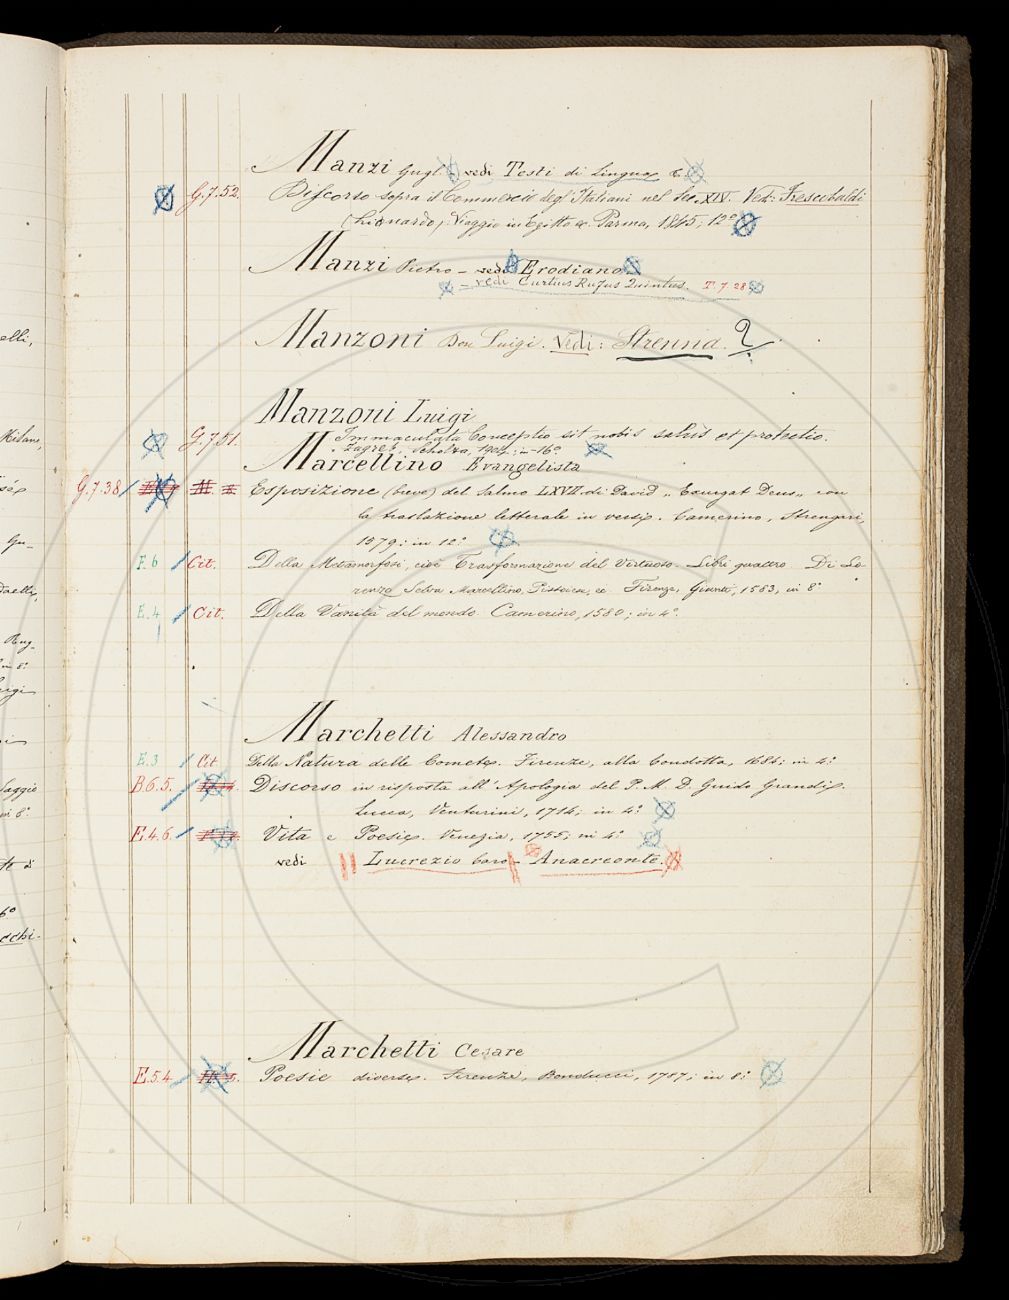 elli,
Milano,
Manzi Gugl. vedi Testi di Lingua &.
G.7.52. Discorso sopra il Commercio degl'Italiani nel Sec. XIV. Vedi: Frescobaldi
(Lionardo) Viaggio in Egitto &. Parma, 1845; 12°
Manzi Pietro – vedi Erodiano
– vedi Curtius Rufus Quintus. T.7.28
Manzoni Don Luigi. Vedi: Strenna. ?
Manzoni Luigi
G.7.51. Immaculata Conceptio sit nobis salus et protectio.
Zagreb, Scholza, 1904; in-16°.
Marcellino Evangelista
G.7.38 Esposizione (breve) del Salmo LXVII di David „Exurgat Deus„ con
la traslazione letterale in versi. Camerino,
1579; in 12°
E.6 Cit. Della Metamorfosi, cioè Trasformazione del Virtuoso. Libri quattro. Di Lo-
renzo Selva Marcellino, Pistoiese, ec. Firenze, Giunti, 1583, in 8°
E.4 Cit. Della Vanità del mondo. Camerino, 1580; in 4°.
Marchetti Alessandro
E.3 Cit Della Natura delle Comete. Firenze, alla Condotta, 1684; in 4°
B.6.5. Discorso in risposta all'Apologia del P. M. D. Guido Grandi.
Lucca, Venturini, 1714; in 4°
E.4.6. Vita e Poesie. Venezia, 1755; in 4°
vedi Lucrezio Caro – Anacreonte.
Marchetti Cesare
E.5.4 Poesie diverse. Firenze, Bonducci, 1787; in 8°